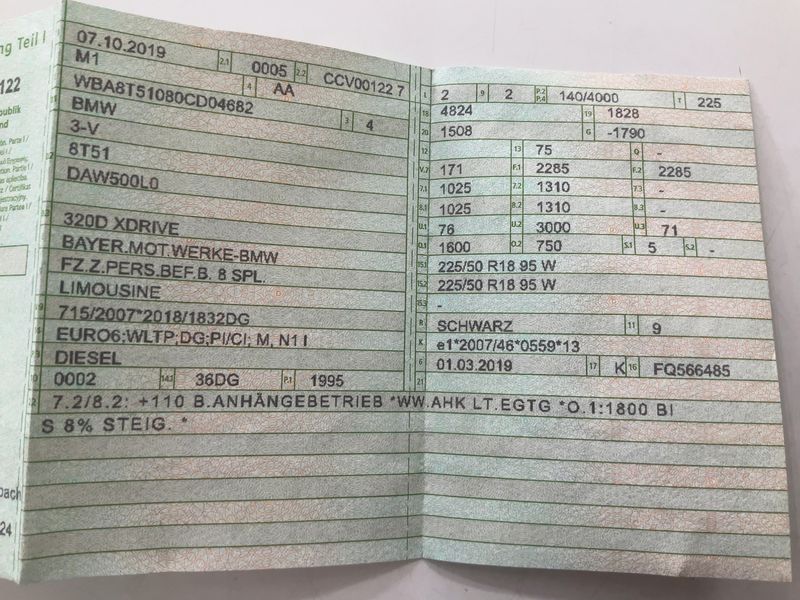 ng Teil I
122
publik
and
07.10.2019 2.1 0005 2.2 CCV00122 7
M1 4 AA
WBA8T51080CD04682
BMW 3 4
3-V
8T51
DAW500L0
320D XDRIVE
BAYER.MOT.WERKE-BMW
FZ.Z.PERS.BEF.B. 8 SPL.
LIMOUSINE
715/2007*2018/1832DG
EURO6;WLTP;DG;PI/CI; M, N1 I
DIESEL
0002 14.1 36DG P.1 1995
L 2 9 2 P.2 P.4 140/4000 T 225
18 4824 19 1828
20 1508 G -1790
12 13 75 Q -
V.7 171 F.1 2285 F.2 2285
7.1 1025 7.2 1310 7.3 -
8.1 1025 8.2 1310 8.3 -
U.1 76 U.2 3000 U.3 71
O.1 1600 O.2 750 S.1 5 S.2 -
15.1 225/50 R18 95 W
15.2 225/50 R18 95 W
15.3 -
R SCHWARZ 11 9
K e1*2007/46*0559*13
6 01.03.2019 17 K 16 FQ566485
21
22 7.2/8.2: +110 B.ANHÄNGEBETRIEB *WW.AHK LT.EGTG *O.1:1800 BI
S 8% STEIG. *
bach
24